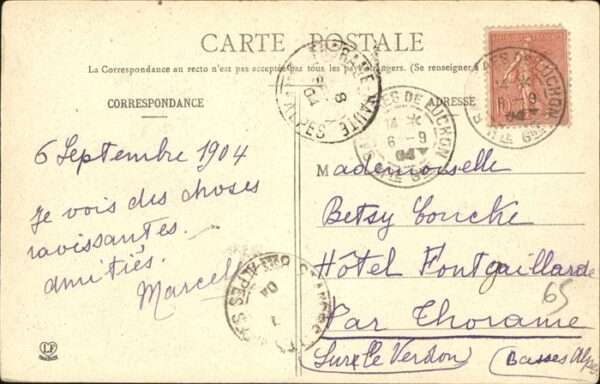 CARTE POSTALE
La Correspondance au recto n'est pas acceptée par tous les pays étrangers. (Se renseigner à
CORRESPONDANCE
ADRESSE
6 Septembre 1904
Je vois des choses
ravissantes.
amitiés.
Marcel
Mademoiselle
Betsy
Hôtel Fontgaillarde
Par Thorame
Sur le Verdon) (Basses Alpes
65
DE LUCHON
14
6 - 9
04
HTE GNE
8
HAUTE
ALPES
LF